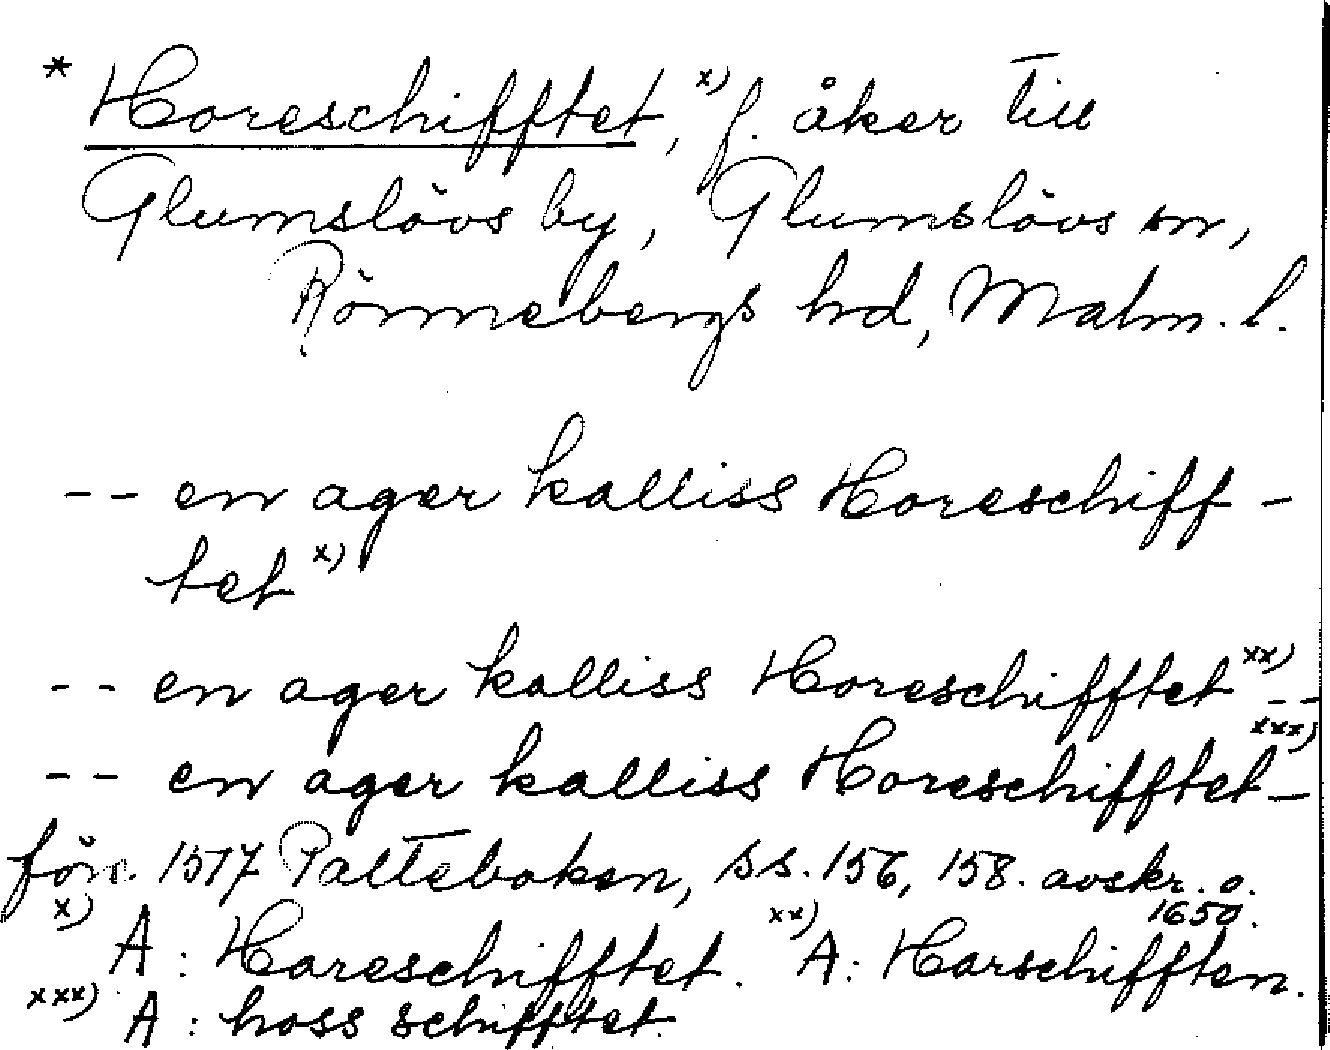 * Horeschifftet, x) f. åker till
Glumslövs by, Glumslövs sn,
Rönnebergs hrd, Malm. l.
-- en ager kalliss Horeschiff-
tet x)
-- en ager kalliss Horeschifftet xx) --
-- en ager kalliss Horeschifftet xxx) -
före 1517 Palteboken, ss. 156, 158. avskr. o.
1650.
x) A: Hareschifftet. xx) A: Harschifften.
xxx) A: hoss schifftet.